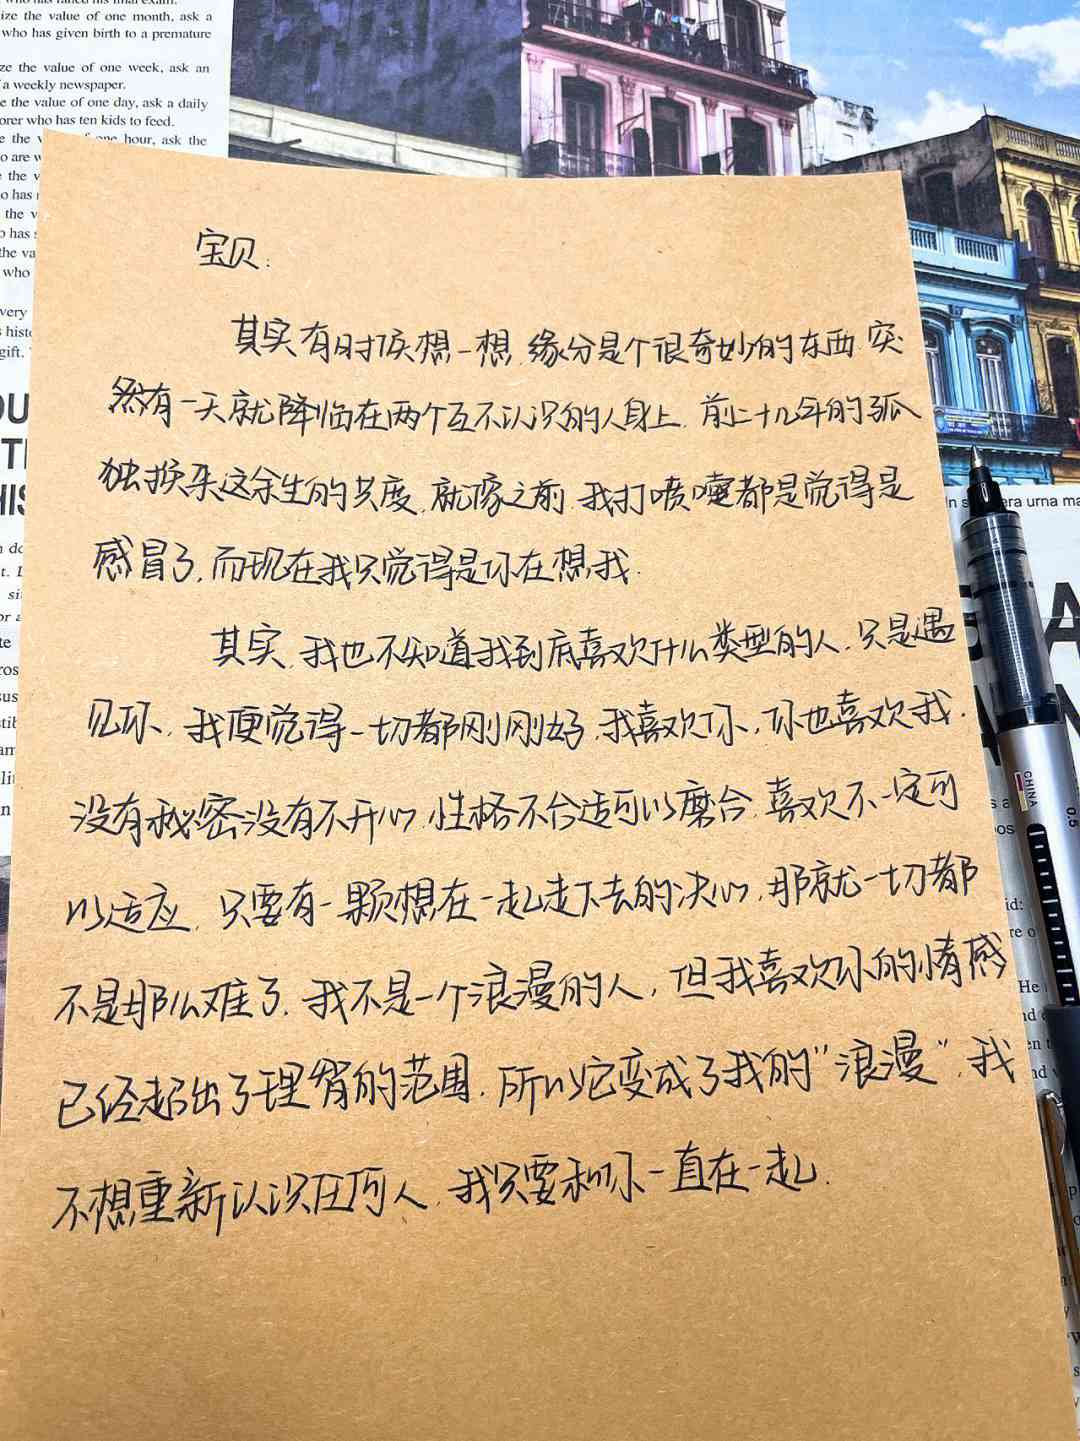 ize the value of one month, ask a
who has given birth to a premature
ze the value of one week, ask an
a weekly newspaper.
e the value of one day, ask a daily
orer who has ten kids to feed.
hour, ask the
宝贝:
其实有时候想一想,缘分是个很奇妙的东西,突
然有一天就降临在两个互不认识的人身上,前二十几年的孤
独换来这余生的共度,就像之前,我打喷嚏都是觉得是
感冒了,而现在我只觉得是你在想我.
其实,我也不知道我到底喜欢什么类型的人,只是遇
见你,我便觉得一切都刚刚好,我喜欢你,你也喜欢我.
没有秘密没有不开心,性格不合适可以磨合,喜欢不一定可
以适应,只要有一颗想在一起走下去的决心,那就一切都
不是那么难了.我不是一个浪漫的人,但我喜欢你的情感
已经超出了理智的范围,所以它变成了我的"浪漫",我
不想重新认识任何人,我只要和你一直在一起.
urna ma
CHINA
0.5